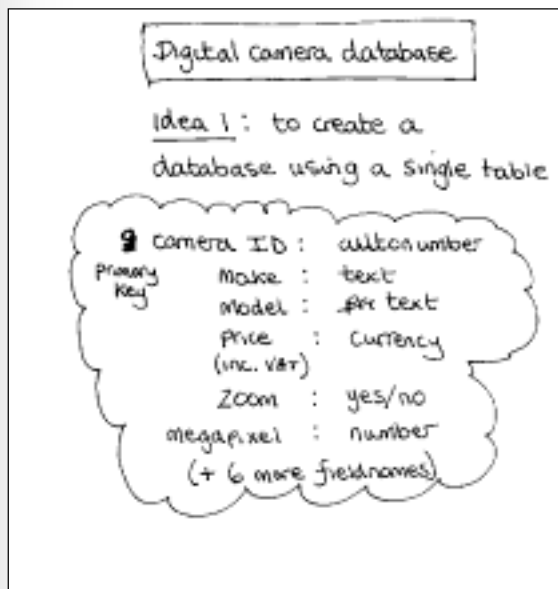 Digital camera database
idea 1: to create a
database using a single table
camera ID : autonumber
primary key
make : text
model : text
price : currency
(inc. VAT)
zoom : yes/no
megapixel : number
(+ 6 more fieldnames)